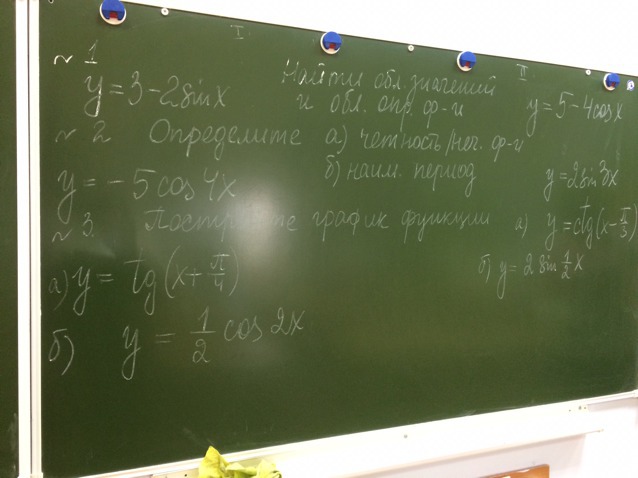 I. II.
№ 1 Найти обл. значений
и обл. опр. ф-и
y = 3 - 2 sin x y = 5 - 4 cos x
№ 2 Определите а) четность/неч. ф-и
б) наим. период
y = -5 cos 4x y = 2 sin 3x
№ 3. Постройте график функции
а) y = tg(x + π/4) а) y = ctg(x - π/3)
б) y = 1/2 cos 2x б) y = 2 sin 1/2 x